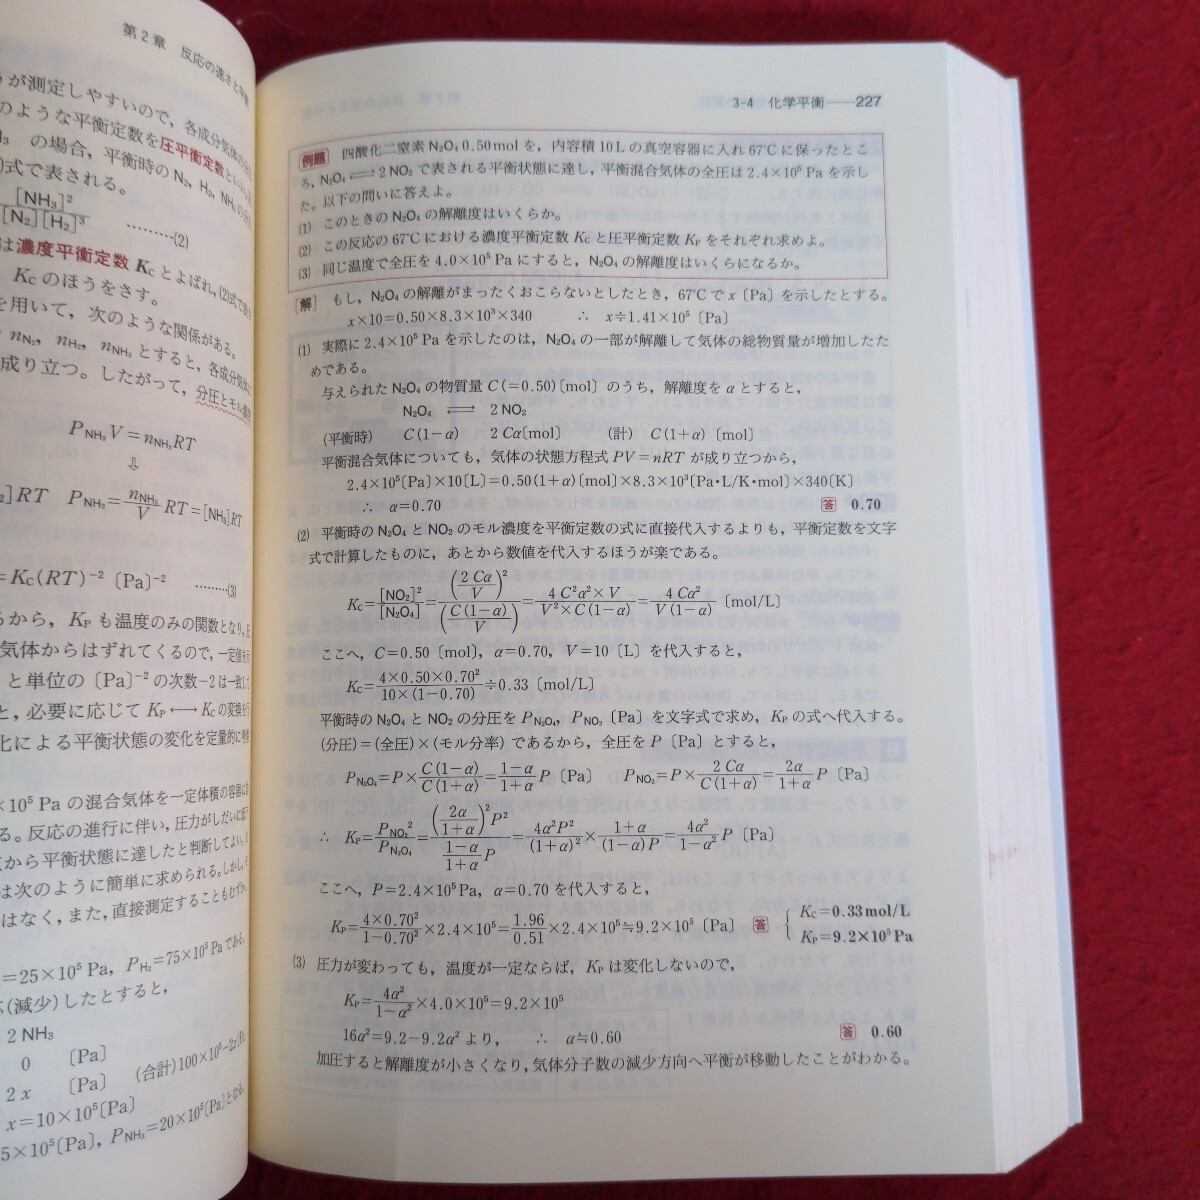 第2章 反応の速さと平衡
が測定しやすいので，各成分気体の
のような平衡定数を圧平衡定数といい，
の場合，平衡時のN₂, H₂, NH₃の
式で表される。
[NH₃]²
[N₂][H₂]³ ………(2)
は濃度平衡定数 Kcとよばれ，(2)式で
Kcのほうをさす。
を用いて，次のような関係がある。
nN₂, nH₂, nNH₃ とすると，各成分気体
成り立つ。したがって，分圧とモル濃度
PNH₃V=nNH₃RT
⇩
]RT PNH₃=nNH₃/V RT=[NH₃]RT
=Kc(RT)⁻² 〔Pa〕⁻² ………(3)
から，KPも温度のみの関数となり，
気体からはずれてくるので，一定値を
と単位の〔Pa〕⁻²の次数−2は一致
と，必要に応じて KP⟷Kcの変換を
化による平衡状態の変化を定量的に
×10⁵ Pa の混合気体を一定体積の容器に
る。反応の進行に伴い，圧力がしだいに
から平衡状態に達したと判断してよい。
は次のように簡単に求められる。しかし，
はなく，また，直接測定することもむずか
=25×10⁵ Pa, PH₂=75×10⁵ Pa である。
(減少)したとすると，
2 NH₃
0 〔Pa〕
2x 〔Pa〕 (合計)100×10⁵−2x〔Pa〕
x=10×10⁵〔Pa〕
5×10⁵〔Pa〕, PNH₃=20×10⁵〔Pa〕となる。
3-4 化学平衡——227
例題 四酸化二窒素 N₂O₄ 0.50molを，内容積10Lの真空容器に入れ67℃に保ったとこ
ろ，N₂O₄ ⇄ 2 NO₂ で表される平衡状態に達し，平衡混合気体の全圧は2.4×10⁵ Paを示し
た。以下の問いに答えよ。
(1) このときのN₂O₄の解離度はいくらか。
(2) この反応の67℃における濃度平衡定数 Kcと圧平衡定数 KPをそれぞれ求めよ。
(3) 同じ温度で全圧を4.0×10⁵ Paにすると，N₂O₄の解離度はいくらになるか。
[解] もし，N₂O₄の解離がまったくおこらないとしたとき，67℃で x〔Pa〕を示したとする。
x×10=0.50×8.3×10³×340 ∴ x≒1.41×10⁵〔Pa〕
(1) 実際に2.4×10⁵ Paを示したのは，N₂O₄の一部が解離して気体の総物質量が増加したた
めである。
与えられたN₂O₄の物質量 C(=0.50)〔mol〕のうち，解離度を α とすると，
N₂O₄ ⇄ 2 NO₂
(平衡時) C(1−α) 2 Cα〔mol〕 (計) C(1+α)〔mol〕
平衡混合気体についても，気体の状態方程式 PV=nRT が成り立つから，
2.4×10⁵〔Pa〕×10〔L〕=0.50(1+α)〔mol〕×8.3×10³〔Pa・L/K・mol〕×340〔K〕
∴ α=0.70 答 0.70
(2) 平衡時のN₂O₄とNO₂のモル濃度を平衡定数の式に直接代入するよりも，平衡定数を文字
式で計算したものに，あとから数値を代入するほうが楽である。
Kc=[NO₂]²/[N₂O₄]=(2 Cα/V)²/(C(1−α)/V)=4 C²α²×V/V²×C(1−α)=4 Cα²/V(1−α)〔mol/L〕
ここへ，C=0.50〔mol〕，α=0.70，V=10〔L〕を代入すると，
Kc=4×0.50×0.70²/10×(1−0.70)≒0.33〔mol/L〕
平衡時のN₂O₄とNO₂の分圧を PN₂O₄, PNO₂〔Pa〕を文字式で求め，KPの式へ代入する。
(分圧)=(全圧)×(モル分率)であるから，全圧を P〔Pa〕とすると，
PN₂O₄=P×C(1−α)/C(1+α)=1−α/1+α P〔Pa〕 PNO₂=P×2 Cα/C(1+α)=2α/1+α P〔Pa〕
∴ KP=PNO₂²/PN₂O₄=(2α/1+α)²P²/1−α/1+α P=4α²P²/(1+α)²×1+α/(1−α)P=4α²/1−α² P〔Pa〕
ここへ，P=2.4×10⁵Pa，α=0.70を代入すると，
KP=4×0.70²/1−0.70²×2.4×10⁵=1.96/0.51×2.4×10⁵≒9.2×10⁵〔Pa〕 答 { Kc=0.33mol/L
KP=9.2×10⁵Pa
(3) 圧力が変わっても，温度が一定ならば，KPは変化しないので，
KP=4α²/1−α²×4.0×10⁵=9.2×10⁵
16α²=9.2−9.2α² より， ∴ α≒0.60 答 0.60
加圧すると解離度が小さくなり，気体分子数の減少方向へ平衡が移動したことがわかる。